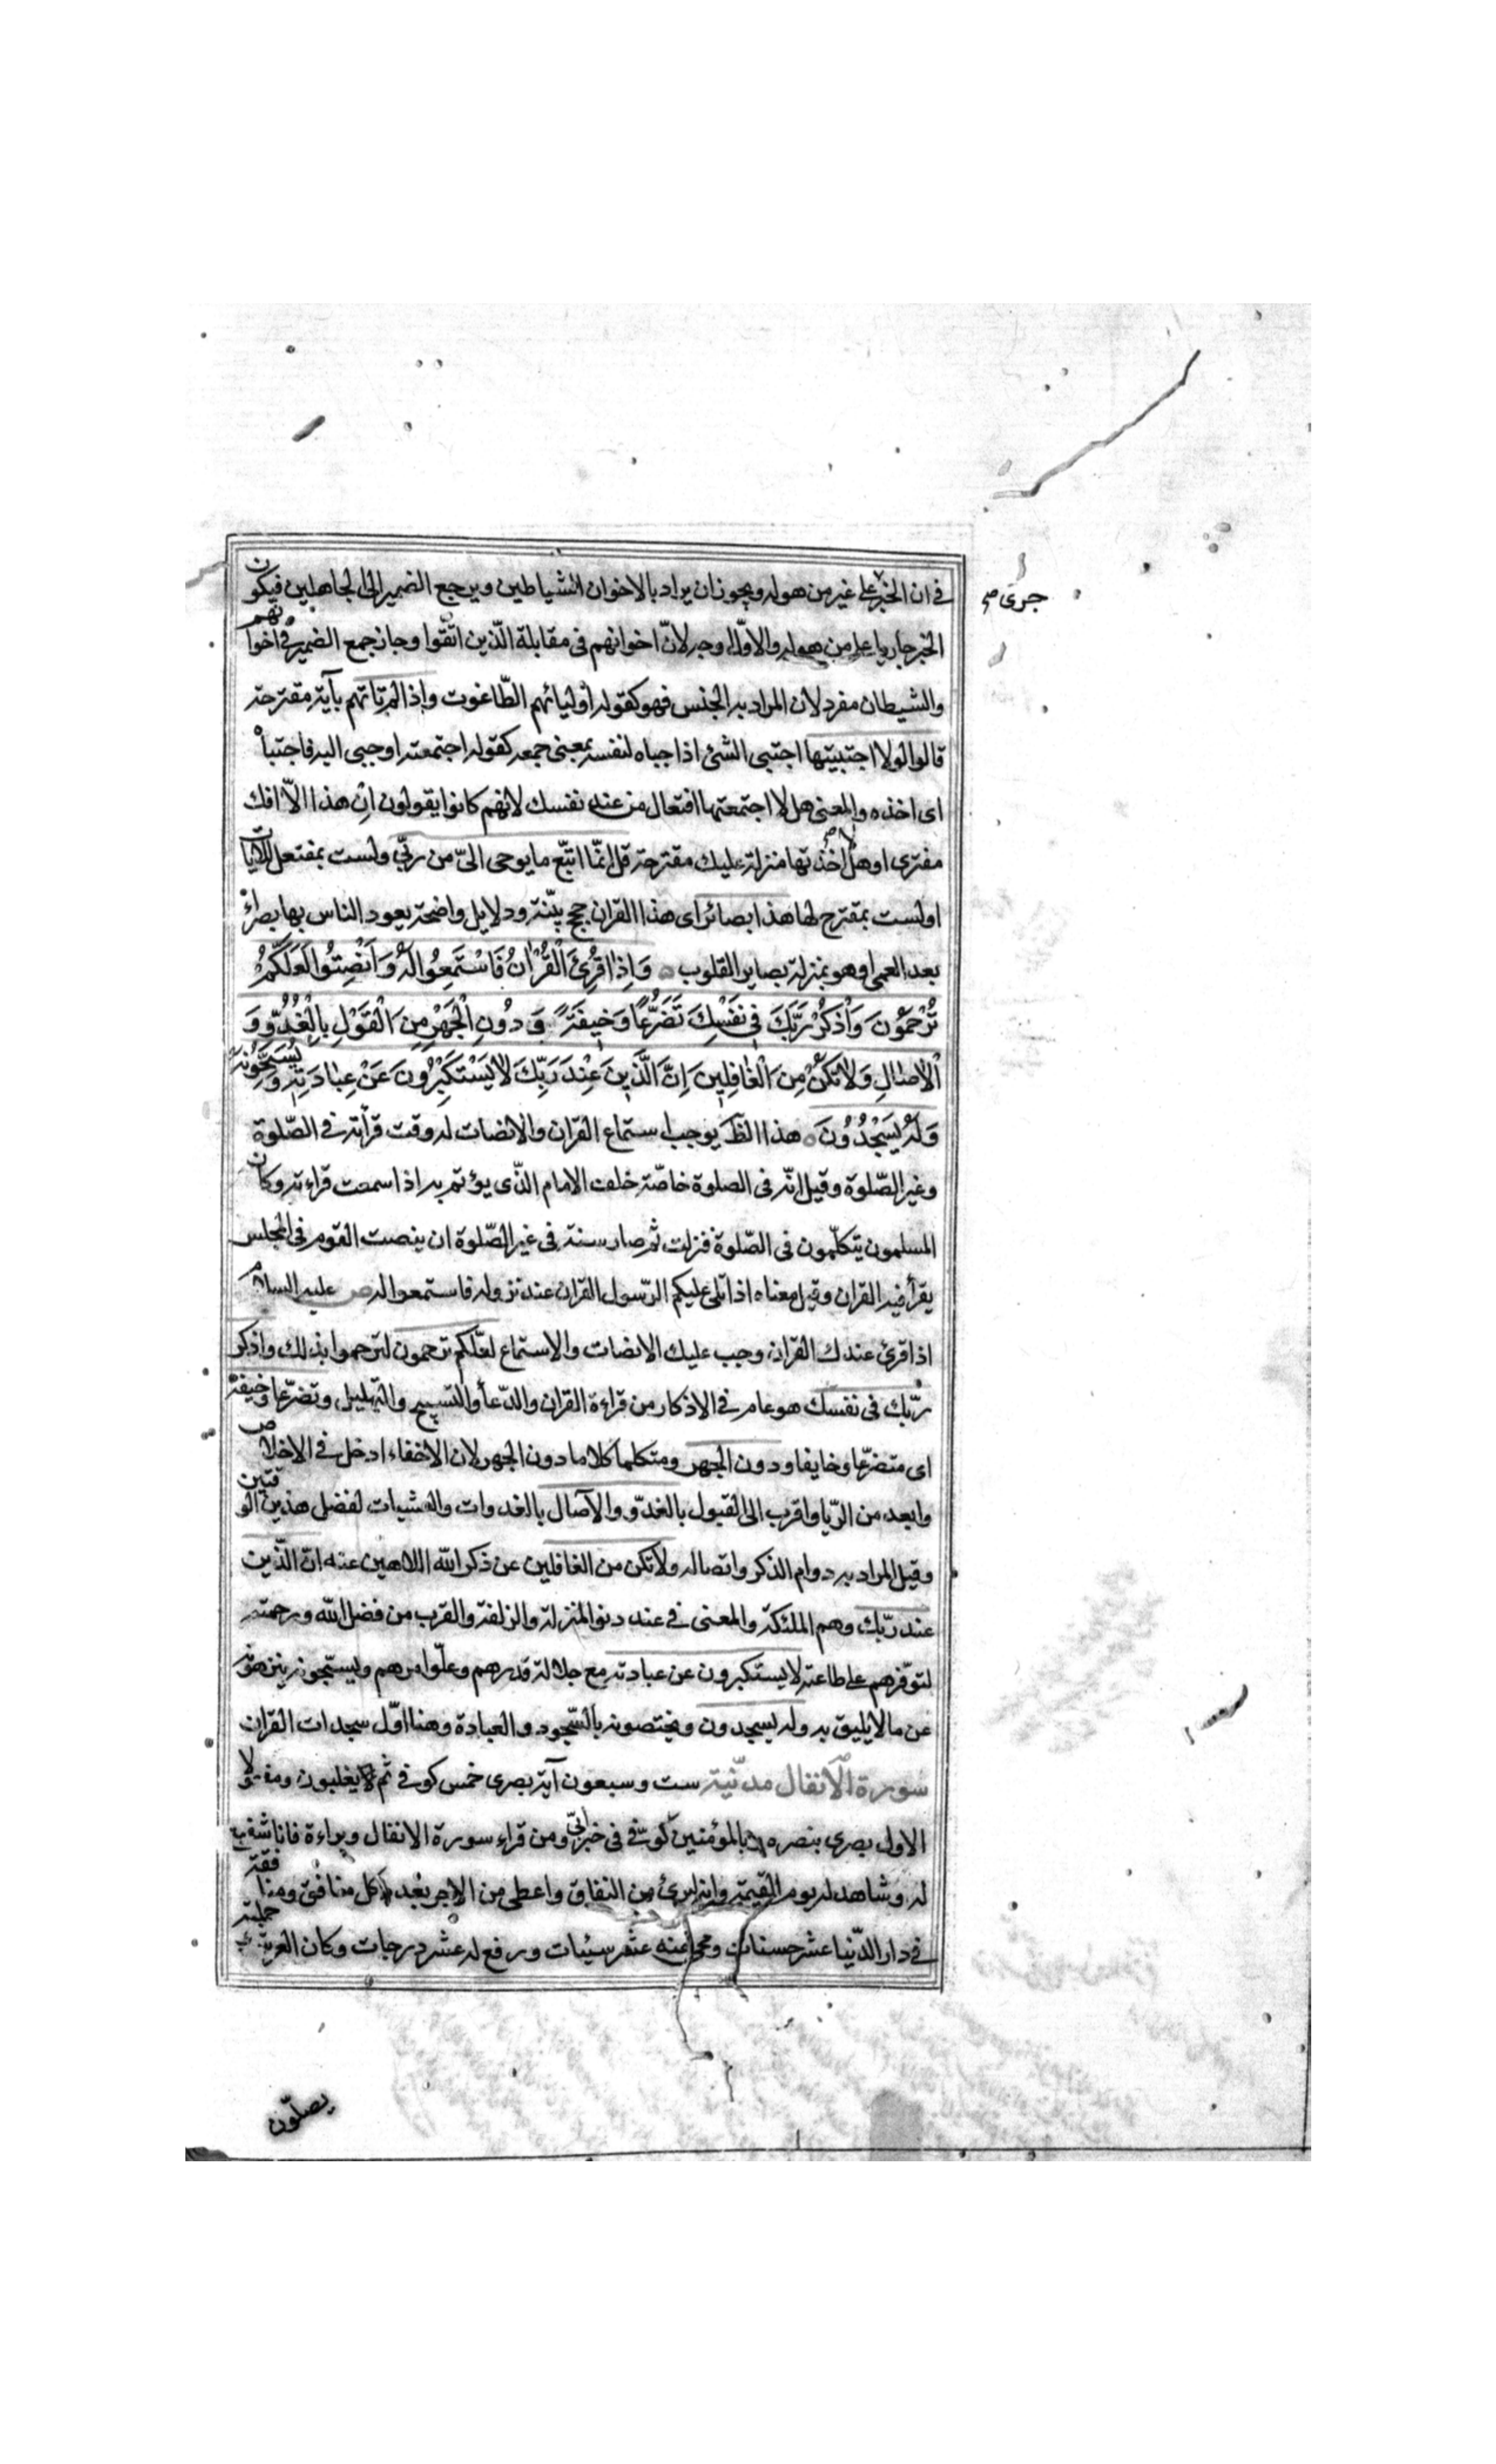 في ان الخبر على غير من هو له ويجوز ان يراد بالاخوان الشياطين ويرجع الضمير الى الجاهلين فيكون
جرى صح
الخبر جاريا على من هو له والاول اوجه لانّ اخوانهم في مقابلة الّذين اتّقوا وجاز جمع الضمير في اخوانهم
والشيطان مفرد لان المراد به الجنس فهو كقوله أوليائهم الطّاغوت وإذا لم تاتهم بآية مقترحة
قالوا لولا اجتبيتها اجتبى الشئ اذا جباه لنفسه بمعنى جمعه كقوله اجتمعته او جبى اليه فاجتباه
اى اخذه والمعنى هلا اجتمعتها افتعال من عند نفسك لانهم كانوا يقولون ان هذا الّا افك
مفترى او هلا اخذتها منزلة عليك مقترحة قل انمّا اتبّع ما يوحى الىّ من ربّى ولست بمفتعل للآيات
او لست بمقترح لها هذا بصائر اى هذا القران حجج بيّنة ودلايل واضحة يعود الناس بها بصراء
بعد العمى او هو بمنزلة بصاير القلوب وَاِذَا قُرِئَ الْقُرْانُ فَاسْتَمِعُوا لَهُ وَاَنْصِتُوا لَعَلَّكُمْ
تُرْحَمُونَ وَاذْكُرْ رَبَّكَ فِي نَفْسِكَ تَضَرُّعًا وَخِيفَةً وَدُونِ الْجَهْرِ مِنَ الْقَوْلِ بِالْغُدُوِّ وَ
الْاٰصَالِ وَلَا تَكُنْ مِنَ الْغَافِلِينَ اِنَّ الَّذِينَ عِنْدَ رَبِّكَ لَا يَسْتَكْبِرُونَ عَنْ عِبَادَتِهِ وَيُسَبِّحُونَهُ
وَلَهُ يَسْجُدُونَ هذا الظّ يوجب استماع القران والانصات له وقت قرأته في الصّلوة
وغير الصّلوة وقيل انّه فى الصلوة خاصّة خلف الامام الذّى يؤتم به اذا سمعت قراءته وكان
المسلمون يتكلّمون فى الصّلوة فنزلت ثم صار سنة فى غير الصّلوة ان ينصت القوم فى المجلس
يقرأ فيه القران وقيل معناه اذا تلى عليكم الرّسول القران عند نزوله فاستمعوا له ص عليه السلام
اذا قرئ عندك القران وجب عليك الانصات والاستماع لعلّكم ترحمون لترحموا بذلك واذكر
ربّك فى نفسك هو عام في الاذكار من قراءة القران والدّعاء والتسبيح والتهليل وتضرّعا وخيفة
اى متضرّعا وخايفا ودون الجهر ومتكلما كلاما دون الجهر لان الاخفاء ادخل في الاخلاص
وابعد من الرّيا واقرب الى القبول بالغدوّ والآصال بالغدوات والعشيات لفضل هذين الوقتين
وقيل المراد به دوام الذكر واتصاله ولا تكن من الغافلين عن ذكر الله اللاهين عنه انّ الّذين
عند ربّك وهم الملئكة والمعنى في عند دنو المنزلة والزلفة والقرب من فضل الله ورحمته
لتوفّرهم على طاعته لا يستكبرون عن عبادته مع جلالة قدرهم وعلّو امرهم ويسبّحونه ينزهونه
عن ما لا يليق به وله يسجدون ويختصونه بالسّجود والعبادة وهنا اوّل سجدات القران
سورة الأنفال مدنّية ست وسبعون آية بصرى خمس كوفي ثم يغلبون ومفعولا
الاول بصرى بنصره وبالمؤمنين كوفّى فى خبر ابىّ ومن قراء سورة الانفال وبراءة فانا شفيع
له وشاهد له يوم القيمة وانه برئ من النفاق واعطى من الاجر بعدد كل منافق ومنافقة
في دار الدّنيا عشر حسنات ومحى عنه عشر سيئات ورفع له عشر درجات وكان العرش وحملته
يصلّون